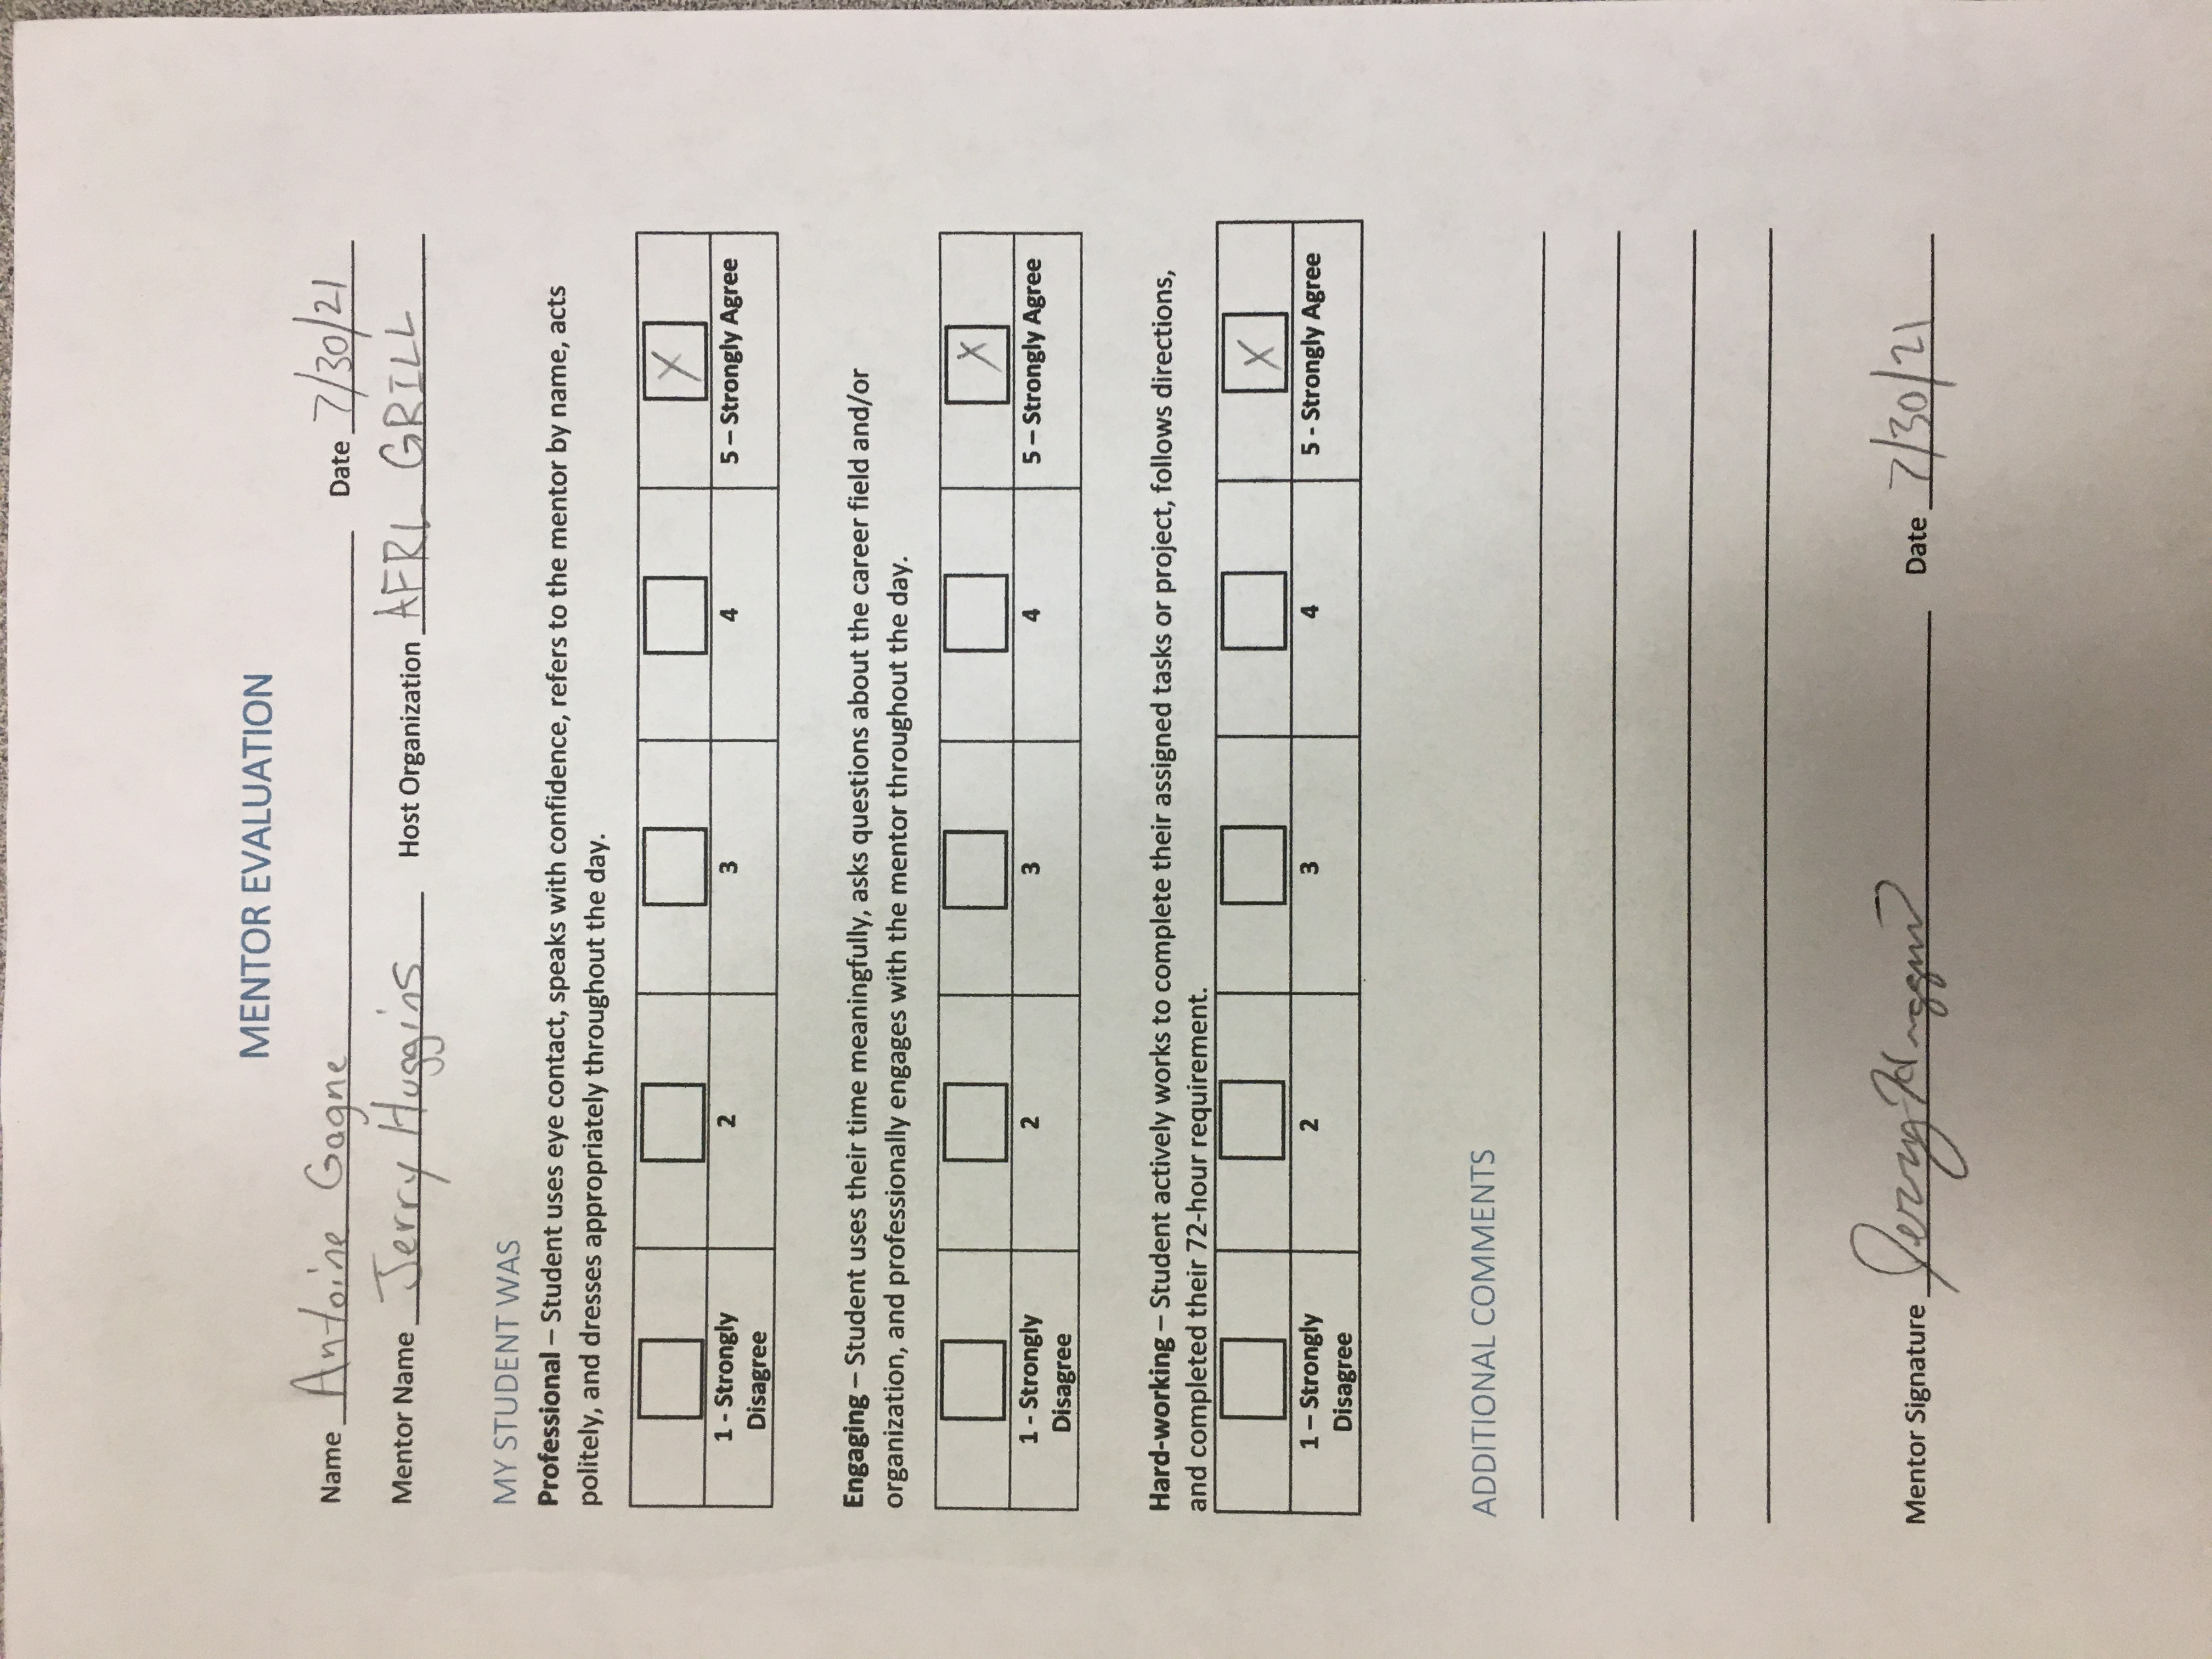 MENTOR EVALUATION
Name Antoine Gagne Date 7/30/21
Mentor Name Jerry Huggins Host Organization AFRL GRILL
MY STUDENT WAS
Professional – Student uses eye contact, speaks with confidence, refers to the mentor by name, acts
politely, and dresses appropriately throughout the day.
X
1 - Strongly 2 3 4 5 – Strongly Agree
Disagree
Engaging – Student uses their time meaningfully, asks questions about the career field and/or
organization, and professionally engages with the mentor throughout the day.
X
1 - Strongly 2 3 4 5 – Strongly Agree
Disagree
Hard-working – Student actively works to complete their assigned tasks or project, follows directions,
and completed their 72-hour requirement.
X
1 – Strongly 2 3 4 5 - Strongly Agree
Disagree
ADDITIONAL COMMENTS
Mentor Signature Jerry Huggins Date 7/30/21